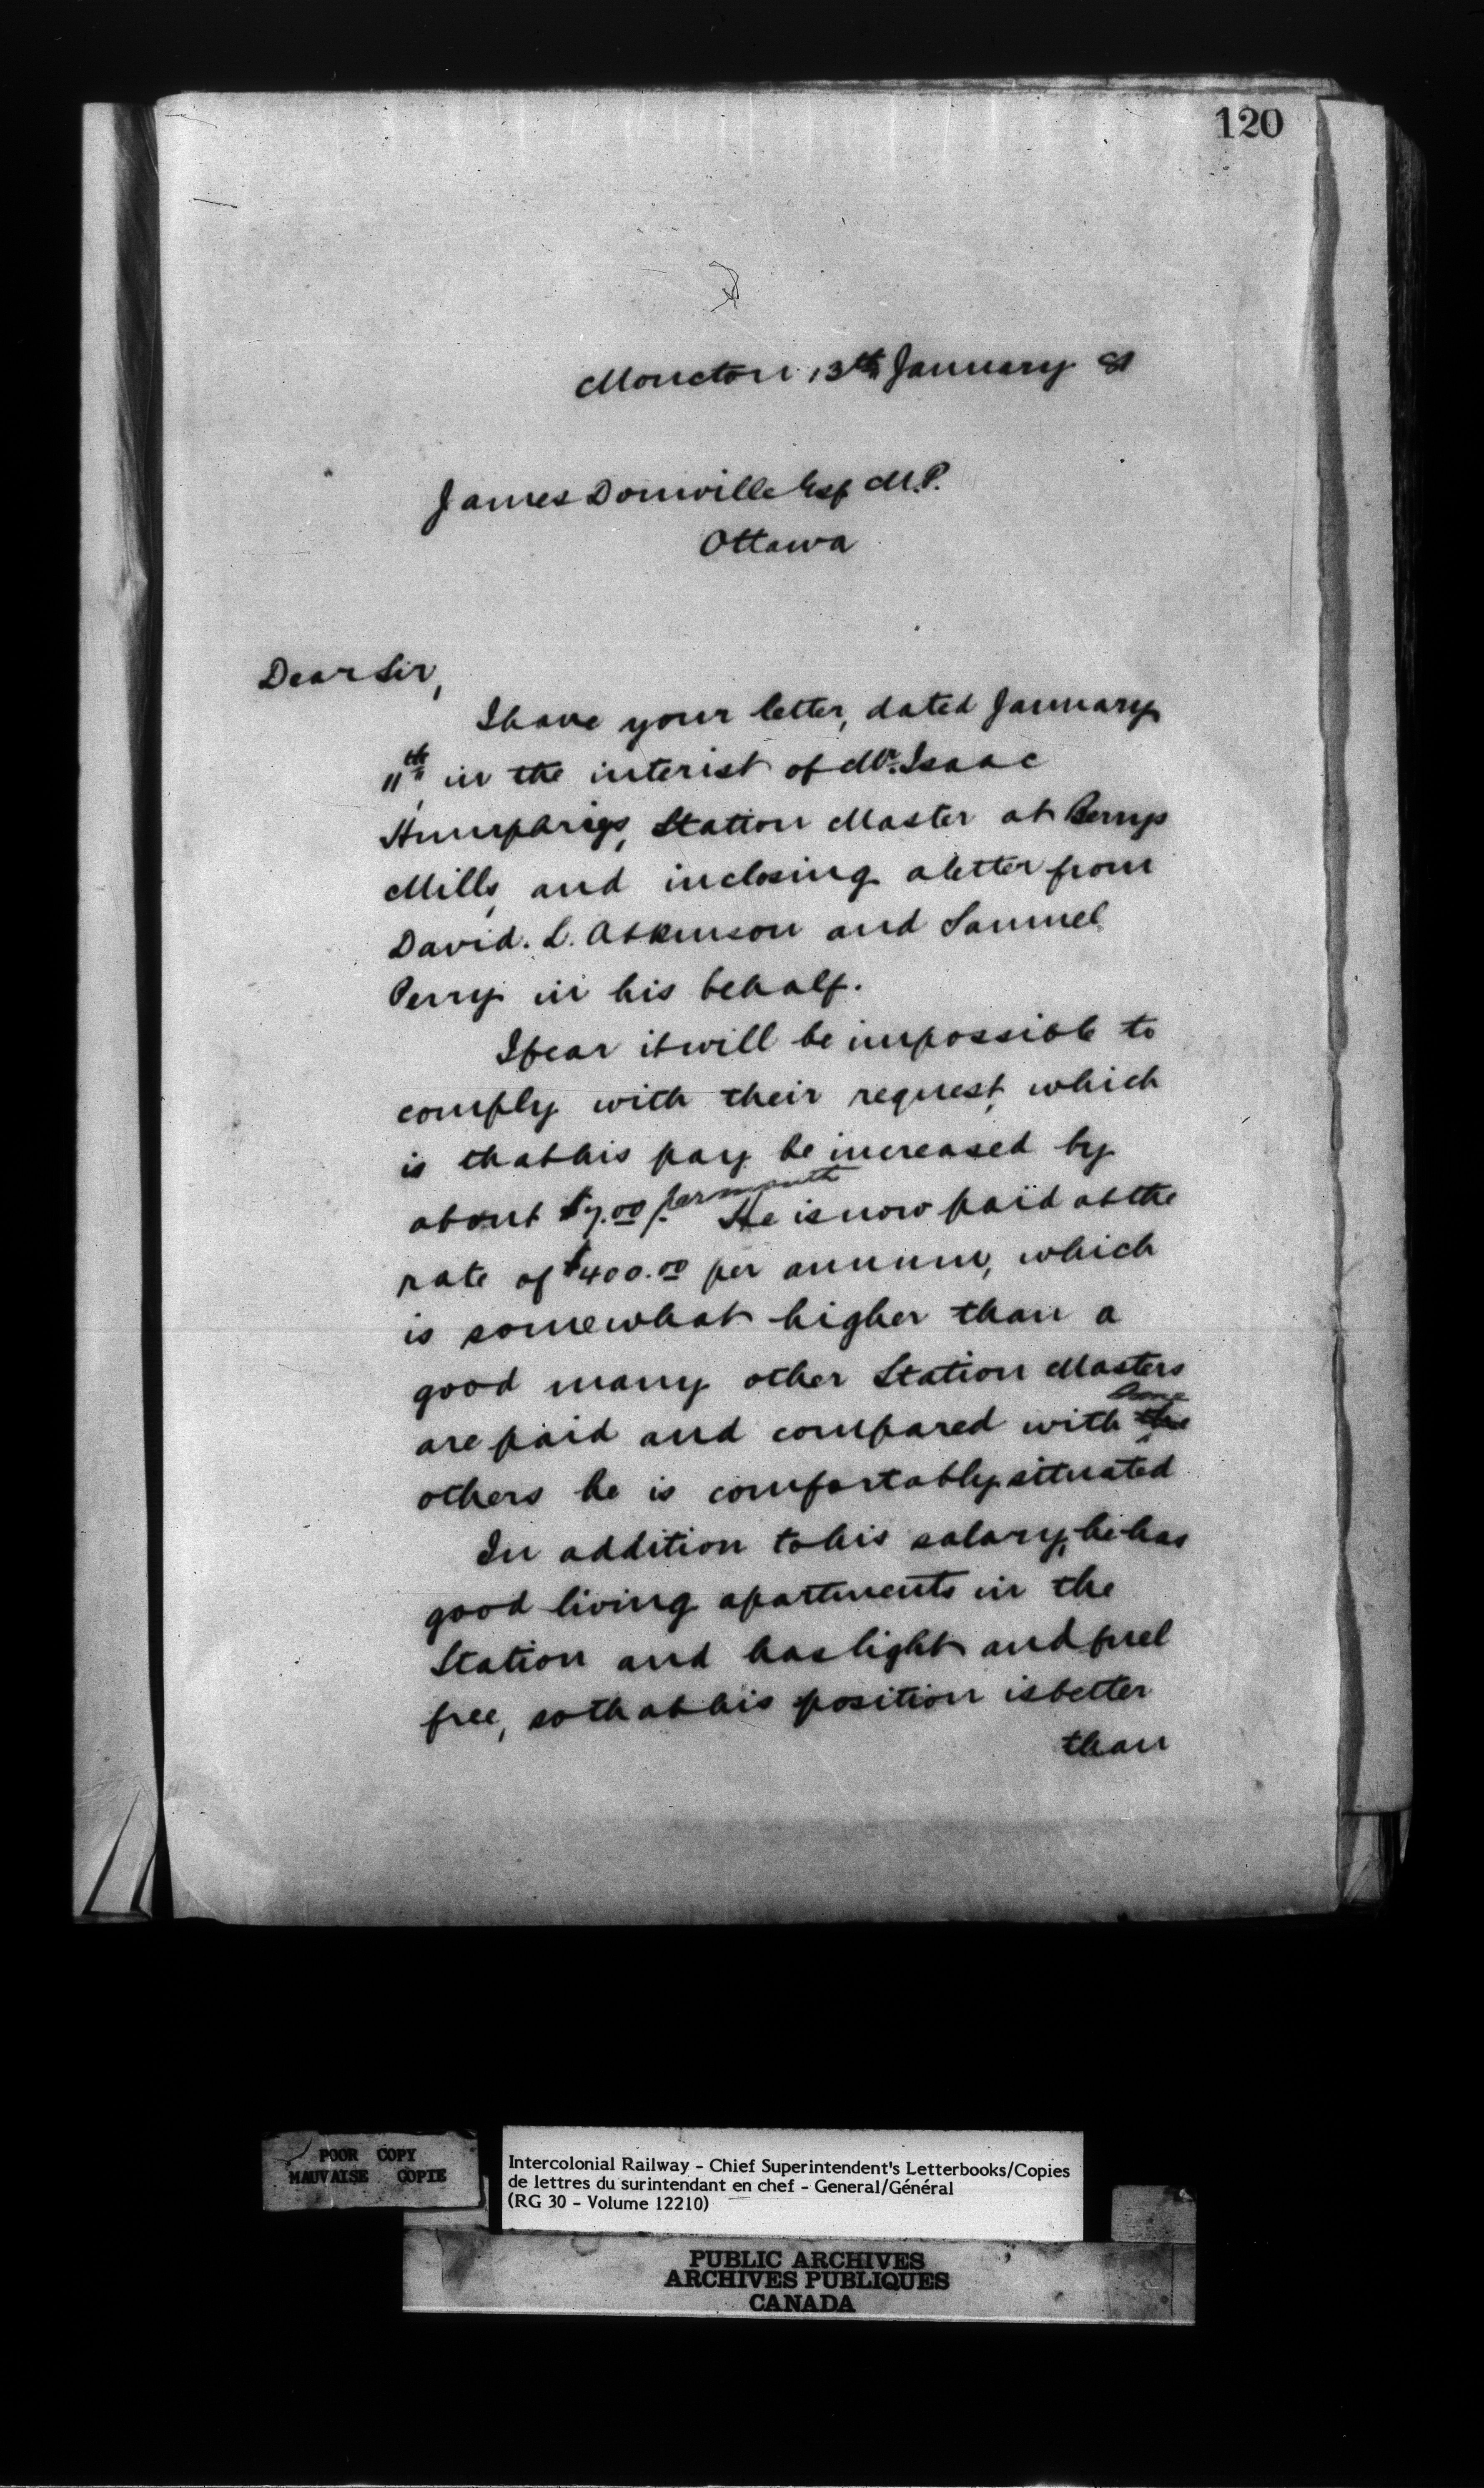 120
Moncton 13th January 81
James Domville Esq M.P.
Ottawa
Dear Sir,
I have your letter, dated January
11th in the interest of Mr. Isaac
Humphrys, Station Master at Berrys
Mills, and inclosing a letter from
David. L. Atkinson and Samuel
Perry in his behalf.
I fear it will be impossible to
comply with their request, which
is that his pay be increased by
about $7.00 per month He is now paid at the
rate of $400.00 per annum, which
is somewhat higher than a
good many other Station Masters
are paid and compared with some
others he is comfortably situated
In addition to his salary, he has
good living apartments in the
Station and has light and fuel
free, so that his position is better
than
POOR COPY
MAUVAISE COPIE
Intercolonial Railway - Chief Superintendent's Letterbooks/Copies
de lettres du surintendant en chef - General/Général
(RG 30 - Volume 12210)
PUBLIC ARCHIVES
ARCHIVES PUBLIQUES
CANADA